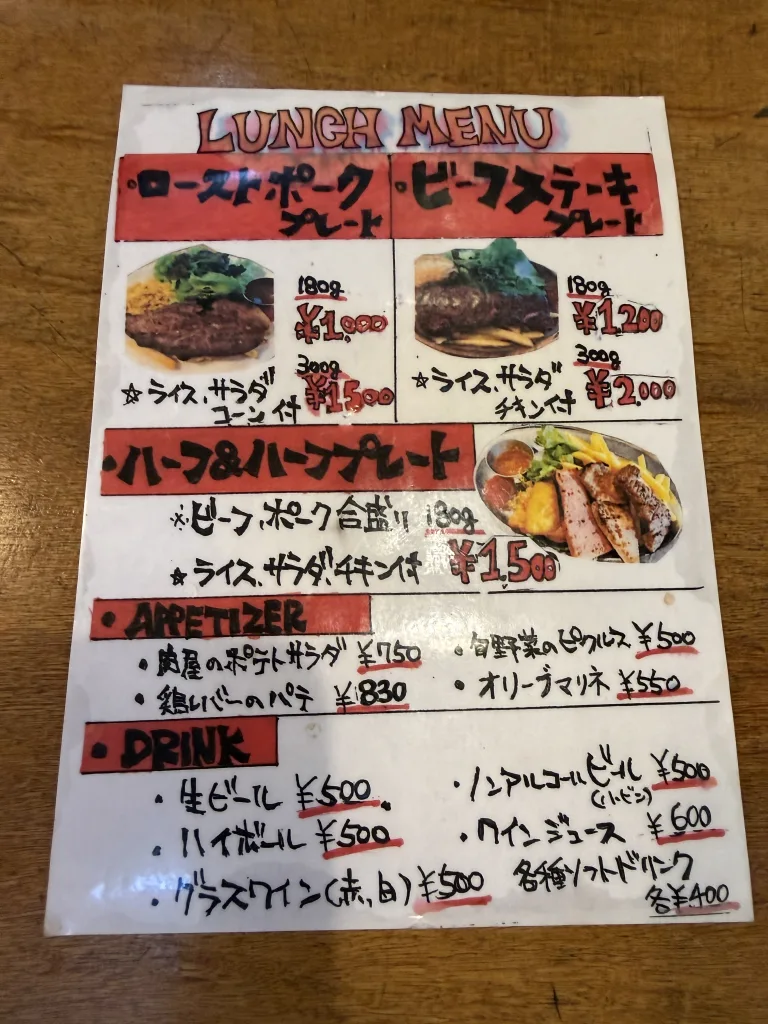 LUNCH MENU
・ローストポーク
プレート
180g
¥1,000
300g
¥1500
☆ライス、サラダ
コーン付
・ビーフステーキ
プレート
180g
¥1,200
300g
¥2,000
☆ライス、サラダ
チキン付
・ハーフ&ハーフプレート
※ビーフ、ポーク合盛り 180g
☆ライス、サラダ、チキン付 ¥1,500
・APPETIZER
・肉屋のポテトサラダ ¥750
・旬野菜のピクルス ¥500
・鶏レバーのパテ ¥830
・オリーブマリネ ¥550
・DRINK
・生ビール ¥500
・ノンアルコールビール ¥500
(小ビン)
・ハイボール ¥500
・ワインジュース ¥600
・グラスワイン(赤,白) ¥500
各種ソフトドリンク
各¥400